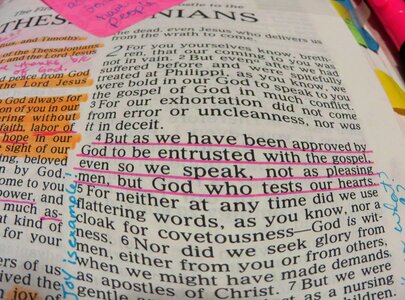 The First
postle to the
THES
NIANS
people
and Timothy,
of the Thessalonians
and the Lord Jesus
peace from God
the Lord Jesus
God always for
ion of you in our
ering without
faith, labor of
hope in our
sight of our
ing, beloved
n by God.
ome to you
ower, and
much as-
at kind of
for your
ers of us
ived the
joy of
the dead, even Jesus who delivers us
from the wrath to come.
2 For you yourselves know, breth-
ren, that our coming to you was
not in vain. 2 But even after we had
suffered before and were spitefully
treated at Philippi, as you know, we
were bold in our God to speak to you
the gospel of God in much conflict.
3 For our exhortation did not come
from error or uncleanness, nor was
it in deceit.
4 But as we have been approved by
God to be entrusted with the gospel,
even so we speak, not as pleasing
men, but God who tests our hearts.
5 For neither at any time did we use
flattering words, as you know, nor a
cloak for covetousness—God is wit-
ness. 6 Nor did we seek glory from
men, either from you or from others,
when we might have made demands
as apostles of Christ. 7 But we were
gentle among you, just as a nursing
children
Joy is example!